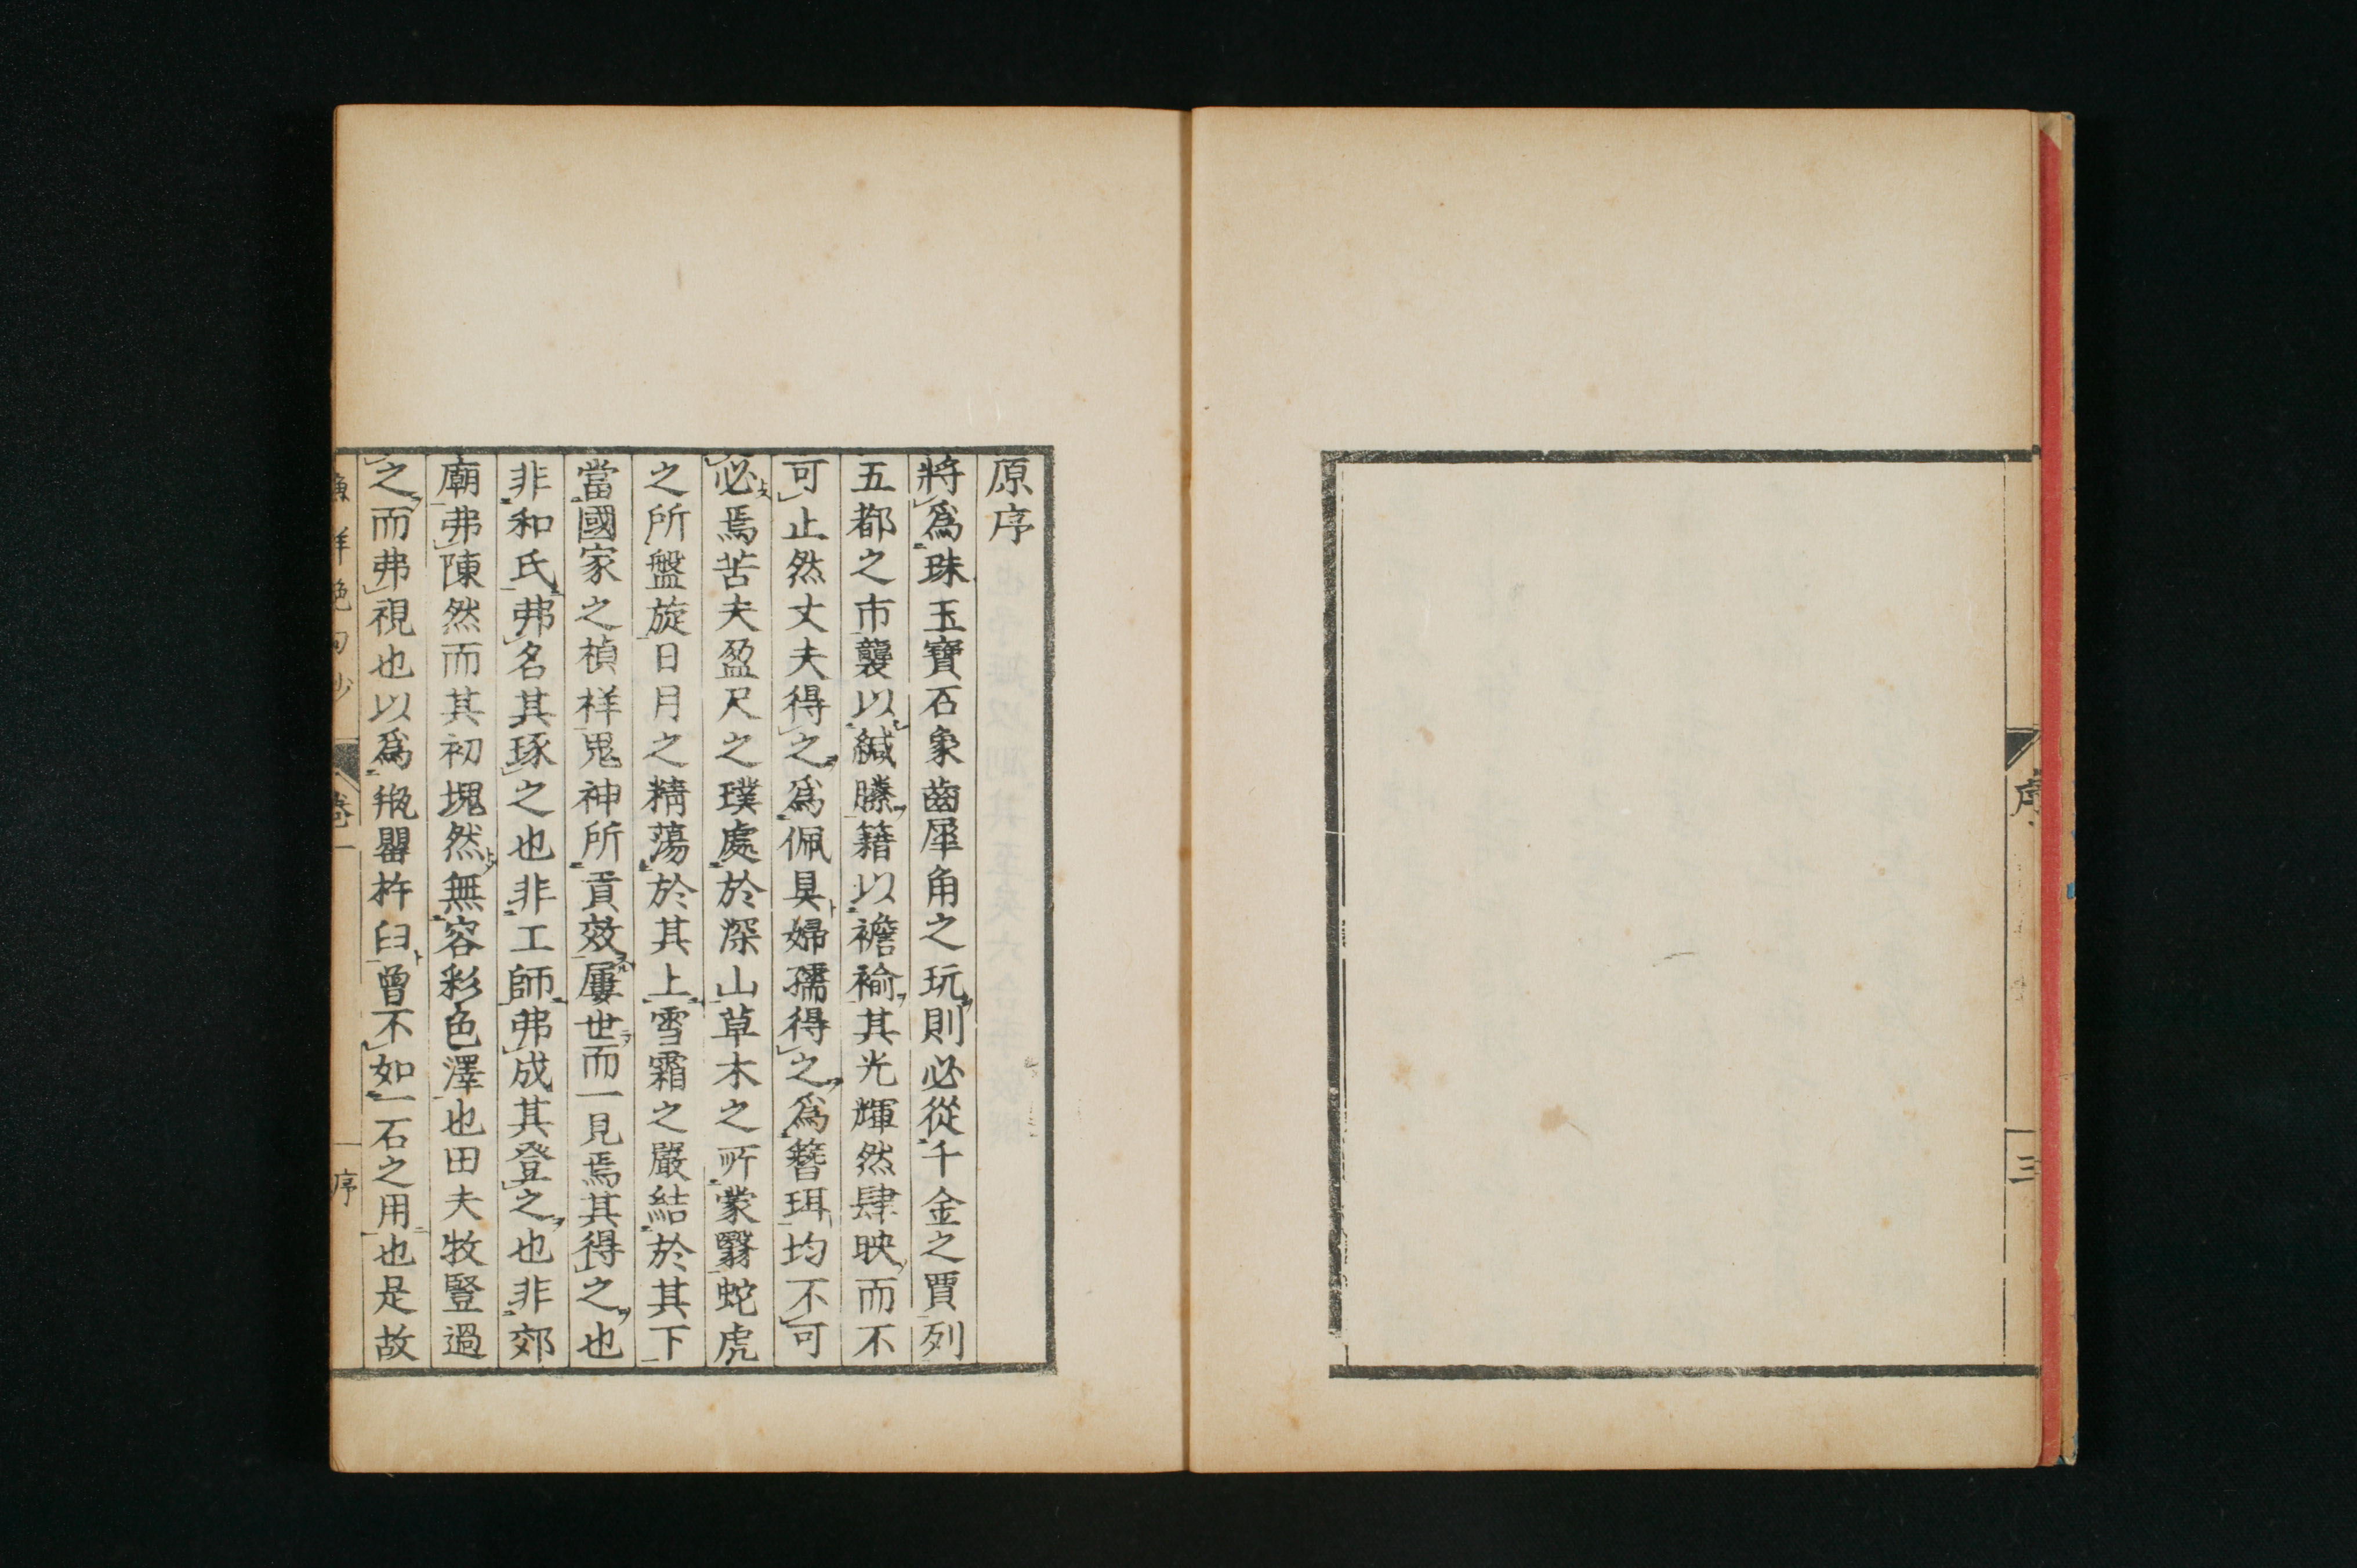 序
三
原序
將爲珠玉寶石象齒犀角之玩則必從千金之賈列
五都之市襲以緘縢籍以襜褕其光輝然肆映而不
可止然丈夫得之爲佩具婦孺得之爲簪珥均不可
必焉苦夫盈尺之璞處於深山草木之所蒙翳蛇虎
之所盤旋日月之精蕩於其上雪霜之嚴結於其下
當國家之禎祥鬼神所貢效屢世而一見焉其得之也
非和氏弗名其琢之也非工師弗成其登之也非郊
廟弗陳然而其初塊然無容彩色澤也田夫牧豎過
之而弗視也以爲瓶罌杵臼曾不如一石之用也是故
漁洋絶句鈔
卷一
序